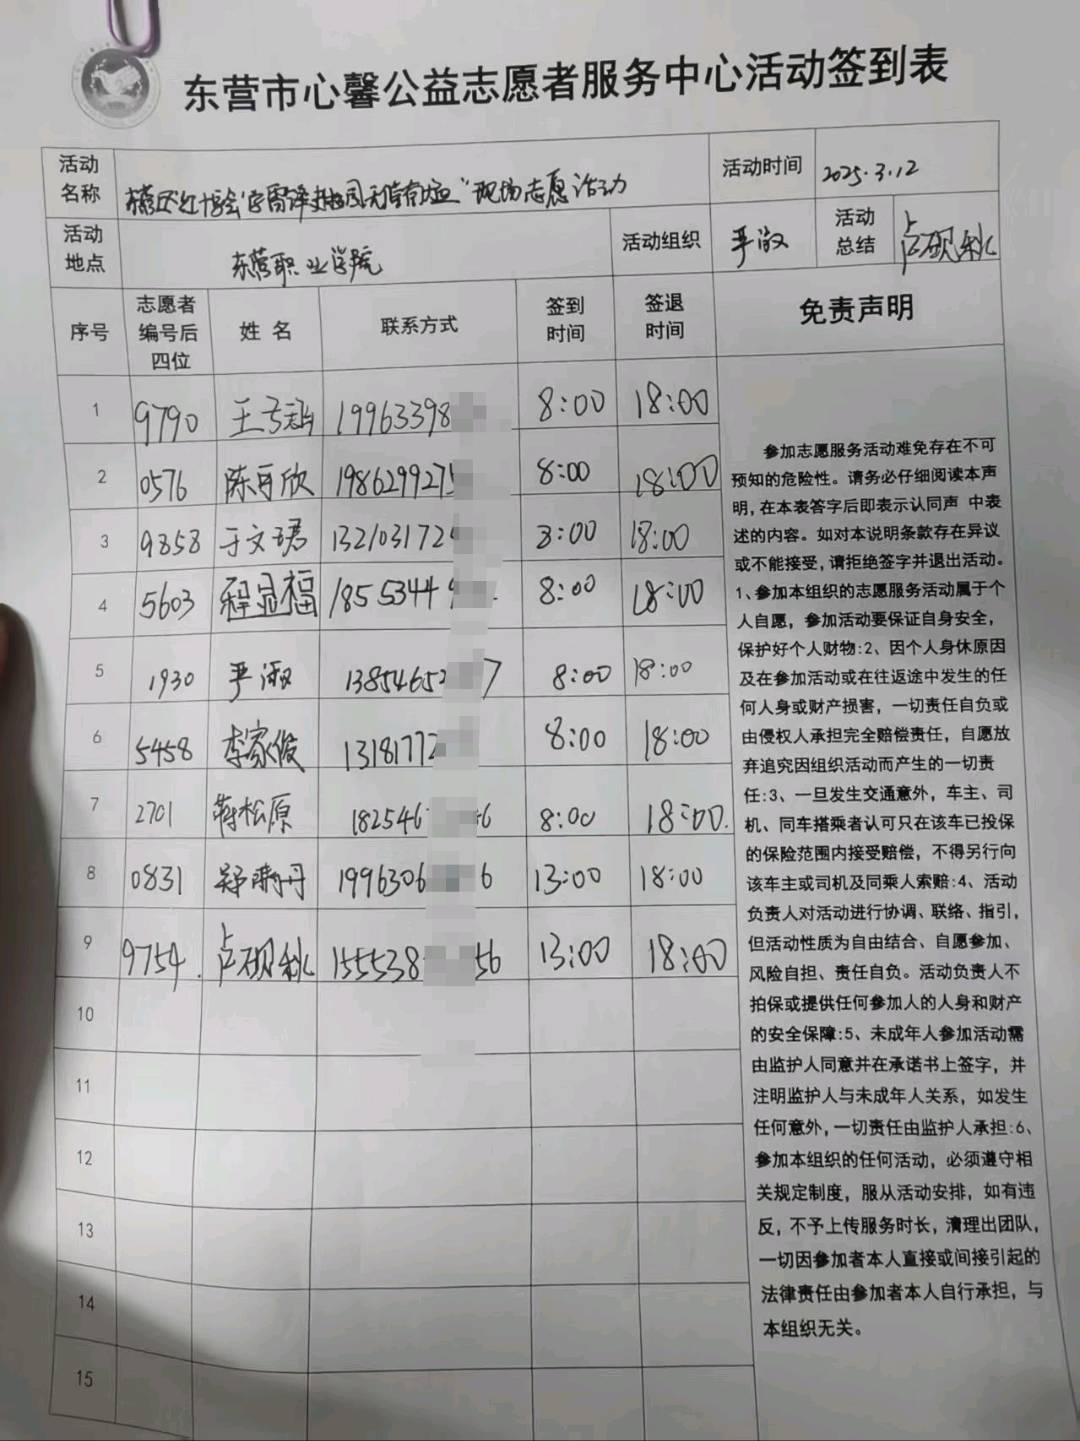 东营市心馨公益志愿者服务中心活动签到表
活动名称 现场志愿活动 活动时间 2025.3.12
活动地点 东营职业学院 活动组织 严淑 活动总结 卢砚秋
序号 志愿者编号后四位 姓名 联系方式 签到时间 签退时间 免责声明
1 9790 王 19963398 8:00 18:00
2 0576 陈可欣 1986299275 8:00 18:00
3 9858 于文珺 132103172 8:00 18:00
4 5603 程显福 1855344 8:00 18:00
5 1930 严淑 13854652 7 8:00 18:00
6 5458 李家俊 13181772 8:00 18:00
7 2701 蒋松原 182546 6 8:00 18:00
8 0831 郑 丹 1996306 6 13:00 18:00
9 9754. 卢砚秋 155538 56 13:00 18:00
10
11
12
13
14
15
参加志愿服务活动难免存在不可
预知的危险性。请务必仔细阅读本声
明,在本表答字后即表示认同声 中表
述的内容。如对本说明条款存在异议
或不能接受,请拒绝签字并退出活动。
1、参加本组织的志愿服务活动属于个
人自愿，参加活动要保证自身安全，
保护好个人财物:2、因个人身休原因
及在参加活动或在往返途中发生的任
何人身或财产损害，一切责任自负或
由侵权人承担完全赔偿责任，自愿放
弃追究因组织活动而产生的一切责
任:3、一旦发生交通意外，车主、司
机、同车搭乘者认可只在该车已投保
的保险范围内接受赔偿，不得另行向
该车主或司机及同乘人索赔:4、活动
负责人对活动进行协调、联络、指引，
但活动性质为自由结合、自愿参加、
风险自担、责任自负。活动负责人不
拍保或提供任何参加人的人身和财产
的安全保障:5、未成年人参加活动需
由监护人同意并在承诺书上签字，并
注明监护人与未成年人关系，如发生
任何意外,一切责任由监护人承担:6、
参加本组织的任何活动，必须遵守相
关规定制度，服从活动安排，如有违
反，不予上传服务时长，清理出团队，
一切因参加者本人直接或间接引起的
法律责任由参加者本人自行承担，与
本组织无关。